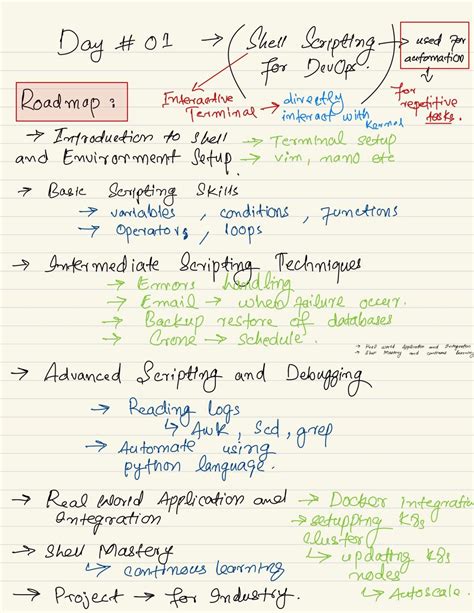 Day # 01 → (Shell Scripting for DevOps.) → used for automation
↓
for repetitive tasks.
Roadmap :
Interactive Terminal → directly interact with Kernel
→ Introduction to Shell and Environment Setup
→ Terminal setup
→ vim, nano etc
→ Basic Scripting Skills
→ variables , conditions , Functions
→ Operators, loops
→ Intermediate Scripting Techniques
→ Errors handling
→ Email → when failure occur.
→ Backup restore of databases
→ Crone → schedule.
→ Real world Application and Integration
→ Shell Mastery and continous learning
→ Advanced Scripting and Debugging
→ Reading logs
↳ Awk, Sed, grep
→ Automate using
python language.
→ Real World Application and Integration
→ Docker Integration
→ setupping K8s cluster
↳ updating K8s nodes
↳ Autoscale
→ Shell Mastery
↳ continous learning
→ Project → for Industry.